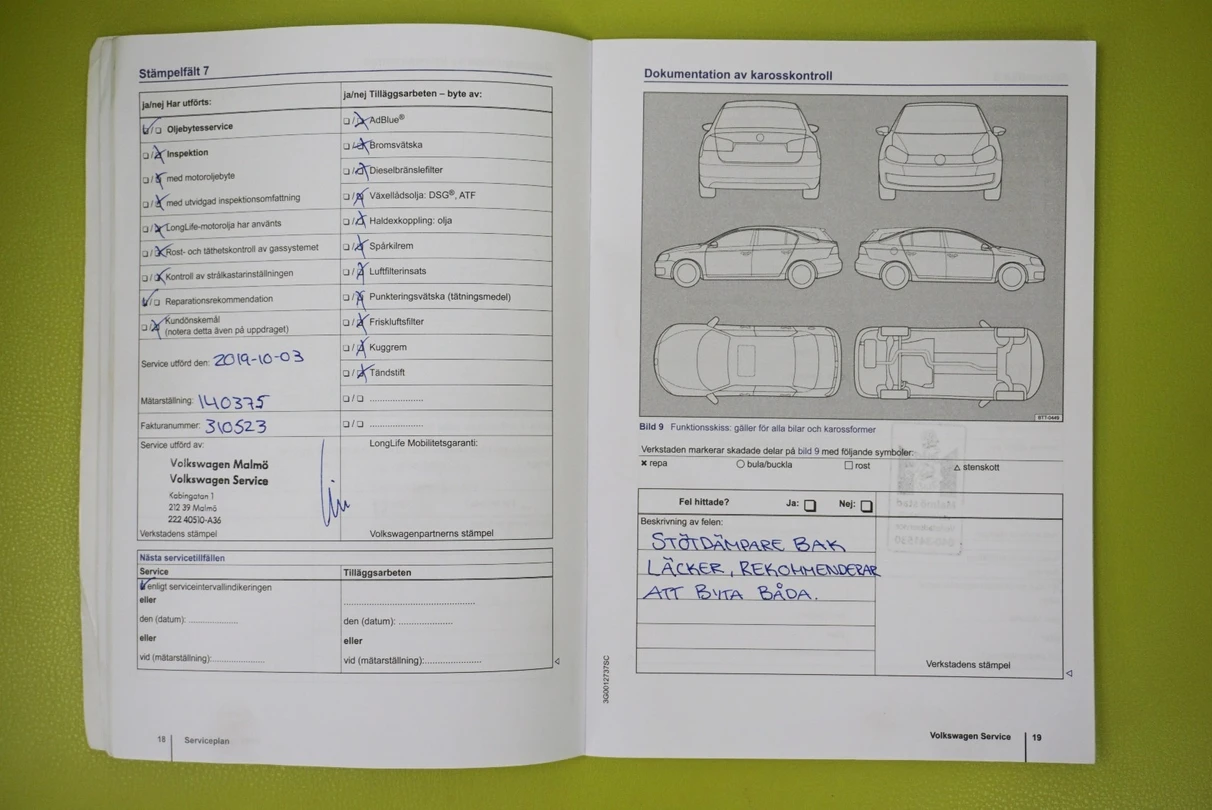 Stämpelfält 7
ja/nej Har utförts:
☑/☐ Oljebytesservice
☐/☒ Inspektion
☐/☒ med motoroljebyte
☐/☒ med utvidgad inspektionsomfattning
☐/☒ LongLife-motorolja har använts
☐/☒ Rost- och täthetskontroll av gassystemet
☐/☒ Kontroll av strålkastarinställningen
☑/☐ Reparationsrekommendation
☐/☒ Kundönskemål
(notera detta även på uppdraget)
Service utförd den: 2019-10-03
Mätarställning: 140375
Fakturanummer: 310523
Service utförd av:
Volkswagen Malmö
Volkswagen Service
Kabingatan 1
212 39 Malmö
222 40510-A36
Verkstadens stämpel
ja/nej Tilläggsarbeten – byte av:
☐/☒ AdBlue®
☐/☒ Bromsvätska
☐/☒ Dieselbränslefilter
☐/☒ Växellådsolja: DSG®, ATF
☐/☒ Haldexkoppling: olja
☐/☒ Spårkilrem
☐/☒ Luftfilterinsats
☐/☒ Punkteringsvätska (tätningsmedel)
☐/☒ Friskluftsfilter
☐/☒ Kuggrem
☐/☒ Tändstift
☐/☐ ......................
☐/☐ ......................
LongLife Mobilitetsgaranti:
Volkswagenpartnerns stämpel
Nästa servicetillfällen
Service
☑ enligt serviceintervallindikeringen
eller
den (datum): ....................
eller
vid (mätarställning):....................
Tilläggsarbeten
......................................................
den (datum): ......................
eller
vid (mätarställning):......................
18 Serviceplan
Dokumentation av karosskontroll
BTT-0449
Bild 9 Funktionsskiss: gäller för alla bilar och karossformer
Verkstaden markerar skadade delar på bild 9 med följande symboler:
✖ repa ○ bula/buckla □ rost △ stenskott
Fel hittade? Ja: ☐ Nej: ☐
Beskrivning av felen:
STÖTDÄMPARE BAK
LÄCKER, REKOMMENDERAR
ATT BYTA BÅDA.
Verkstadens stämpel
3G0012737SC
Volkswagen Service 19